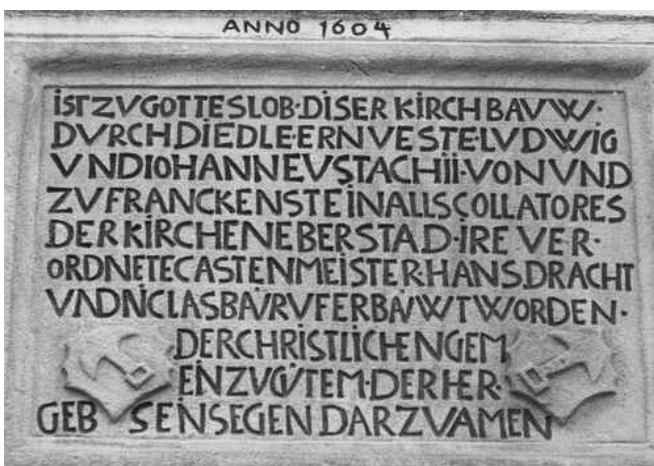 ANNO 1604
IST ZV GOTTES LOB · DISER KIRCH BAVW ·
DVRCH DIE EDLE ERNVESTE LVDWIG
VND IOHANN EVSTACHII · VON VND
ZV FRANCKENSTEIN ALLS COLLATORES
DER KIRCHEN EBERSTAD · IRE VER ·
ORDNETE CASTENMEISTER HANS DRACHT
VND NICLAS BAVR VF ERBAVWT WORDEN ·
DER CHRISTLICHEN GEM
EN ZV GŮTEM · DER HER ·
GEB SEN SEGEN DARZV AMEN